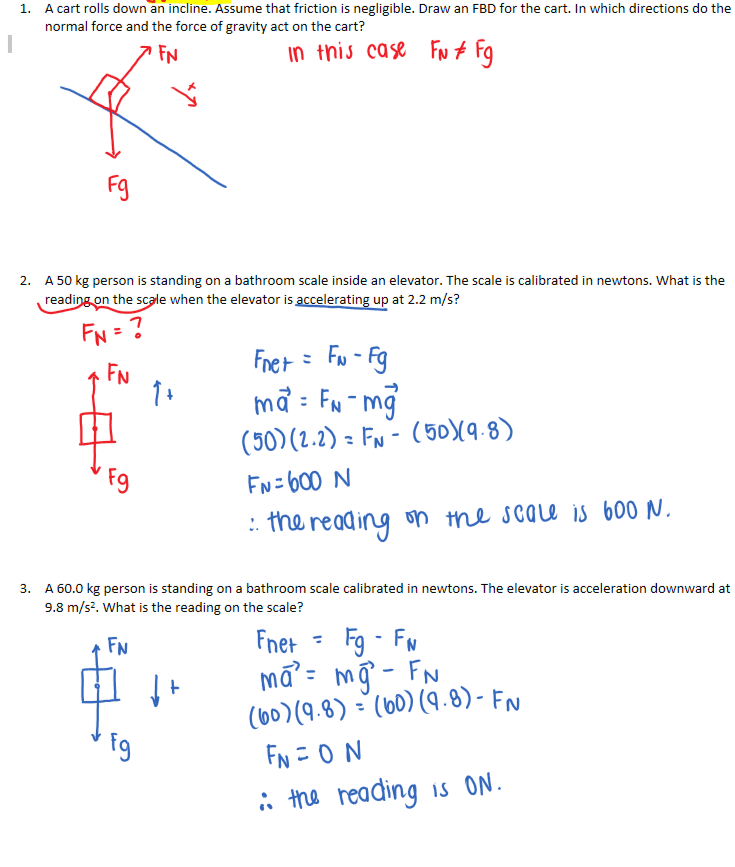 1. A cart rolls down an incline. Assume that friction is negligible. Draw an FBD for the cart. In which directions do the
normal force and the force of gravity act on the cart?
FN
in this case FN ≠ Fg
+
Fg
2. A 50 kg person is standing on a bathroom scale inside an elevator. The scale is calibrated in newtons. What is the
reading on the scale when the elevator is accelerating up at 2.2 m/s?
FN = ?
FN
+
Fg
Fnet = FN - Fg
ma⃗ = FN - mg⃗
(50)(2.2) = FN - (50)(9.8)
FN = 600 N
∴ the reading on the scale is 600 N.
3. A 60.0 kg person is standing on a bathroom scale calibrated in newtons. The elevator is acceleration downward at
9.8 m/s². What is the reading on the scale?
FN
+
Fg
Fnet = Fg - FN
ma⃗ = mg⃗ - FN
(60)(9.8) = (60)(9.8) - FN
FN = 0 N
∴ the reading is 0N.